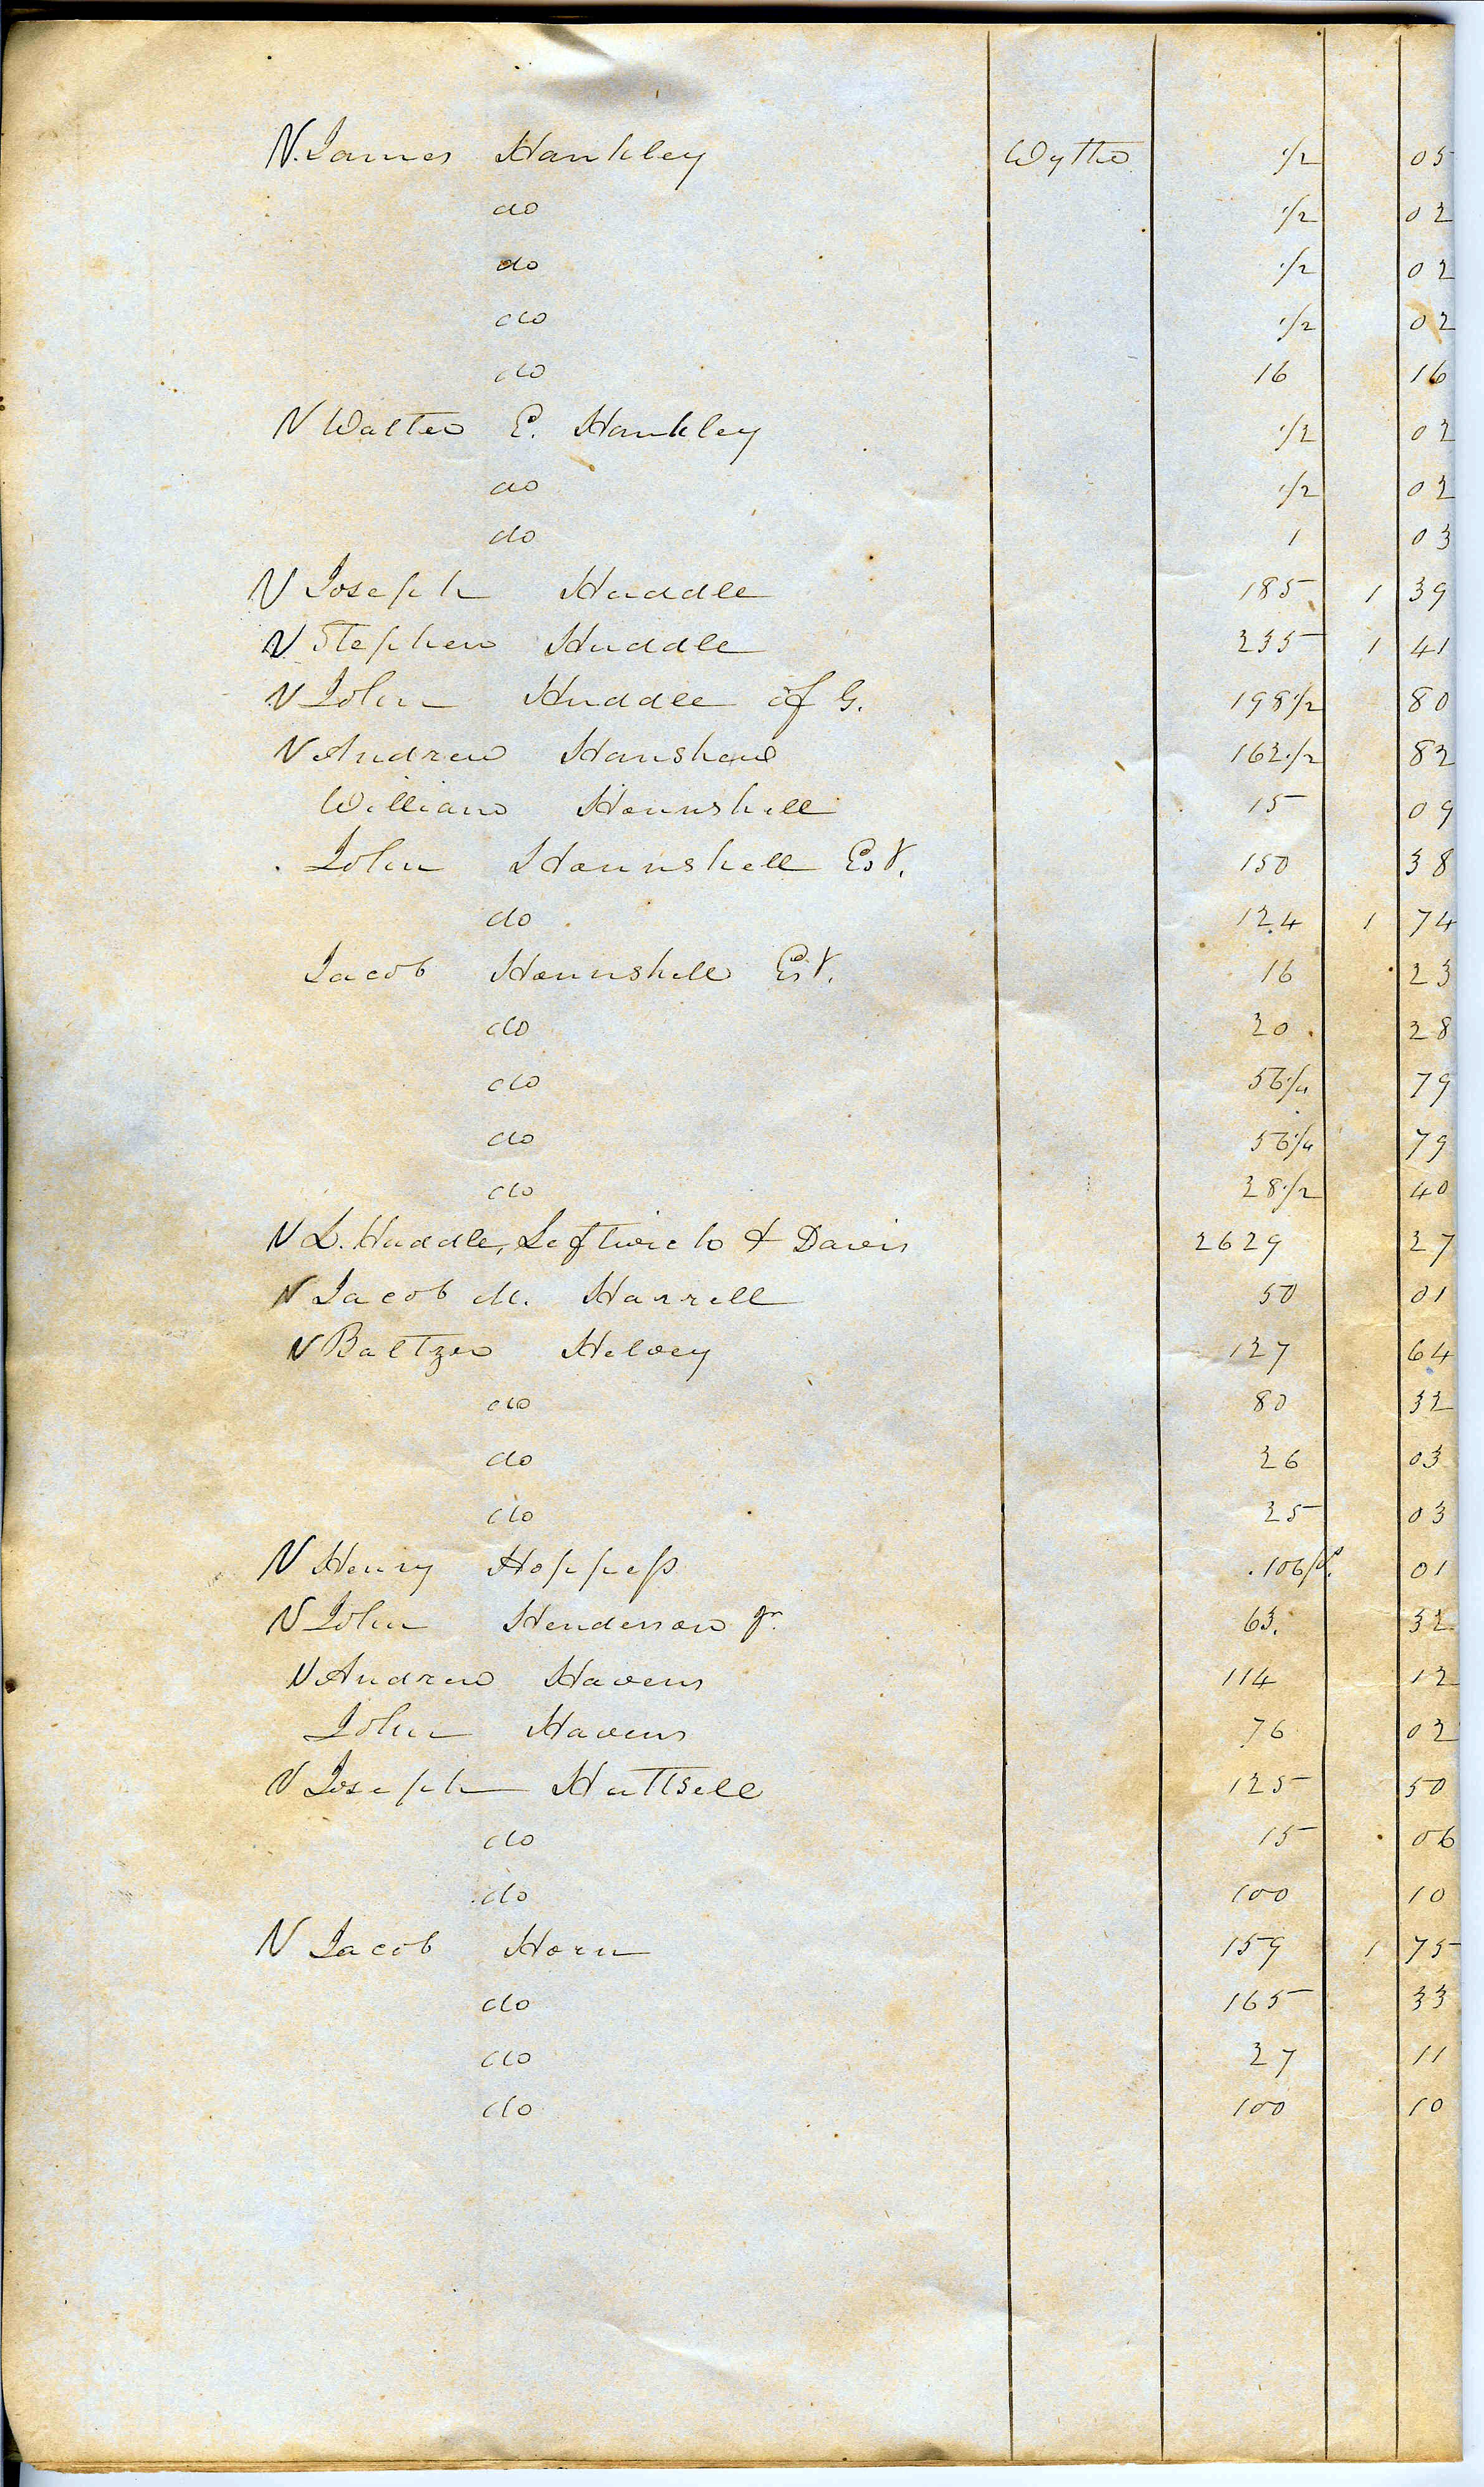 N. James Hankley Wythe 1/2 05
do 1/2 02
do 1/2 02
do 1/2 02
do 16 16
N Walter E. Hankley 1/2 02
do 1/2 02
do 1 03
N Joseph Huddle 185 1 39
N Stephen Huddle 235 1 41
N John Huddle of G. 198 1/2 80
N Andrew Hanshew 162 1/2 82
William Hounshell 15 09
John Hounshell Est. 150 38
do 124 1 74
Jacob Hounshell Est. 16 23
do 20 28
do 56 1/4 79
do 56 1/4 79
do 28 1/2 40
N L. Huddle, Leftwich & Davis 2629 27
N Jacob M. Harrell 50 01
N Baltzer Helvey 127 64
do 80 32
do 26 03
do 25 03
N Henry Hoppess 106 01
N John Henderson Jr. 63. 32
N Andrew Havens 114 12
John Havens 76 02
N Joseph Huttsell 125 50
do 15 06
do 100 10
N Jacob Horn 159 1 75
do 165 33
do 27 11
do 100 10